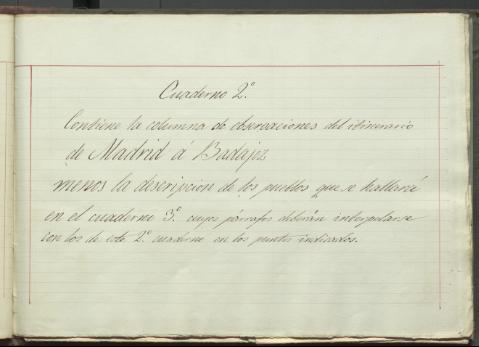 Cuaderno 2.º
Contiene la columna de observaciones del itinerario
de Madrid á Badajoz
menos la descripcion de los pueblos que se hallará
en el cuaderno 3.º cuyos párrafos deberán intercalarse
con los de este 2.º cuaderno en los puntos indicados.